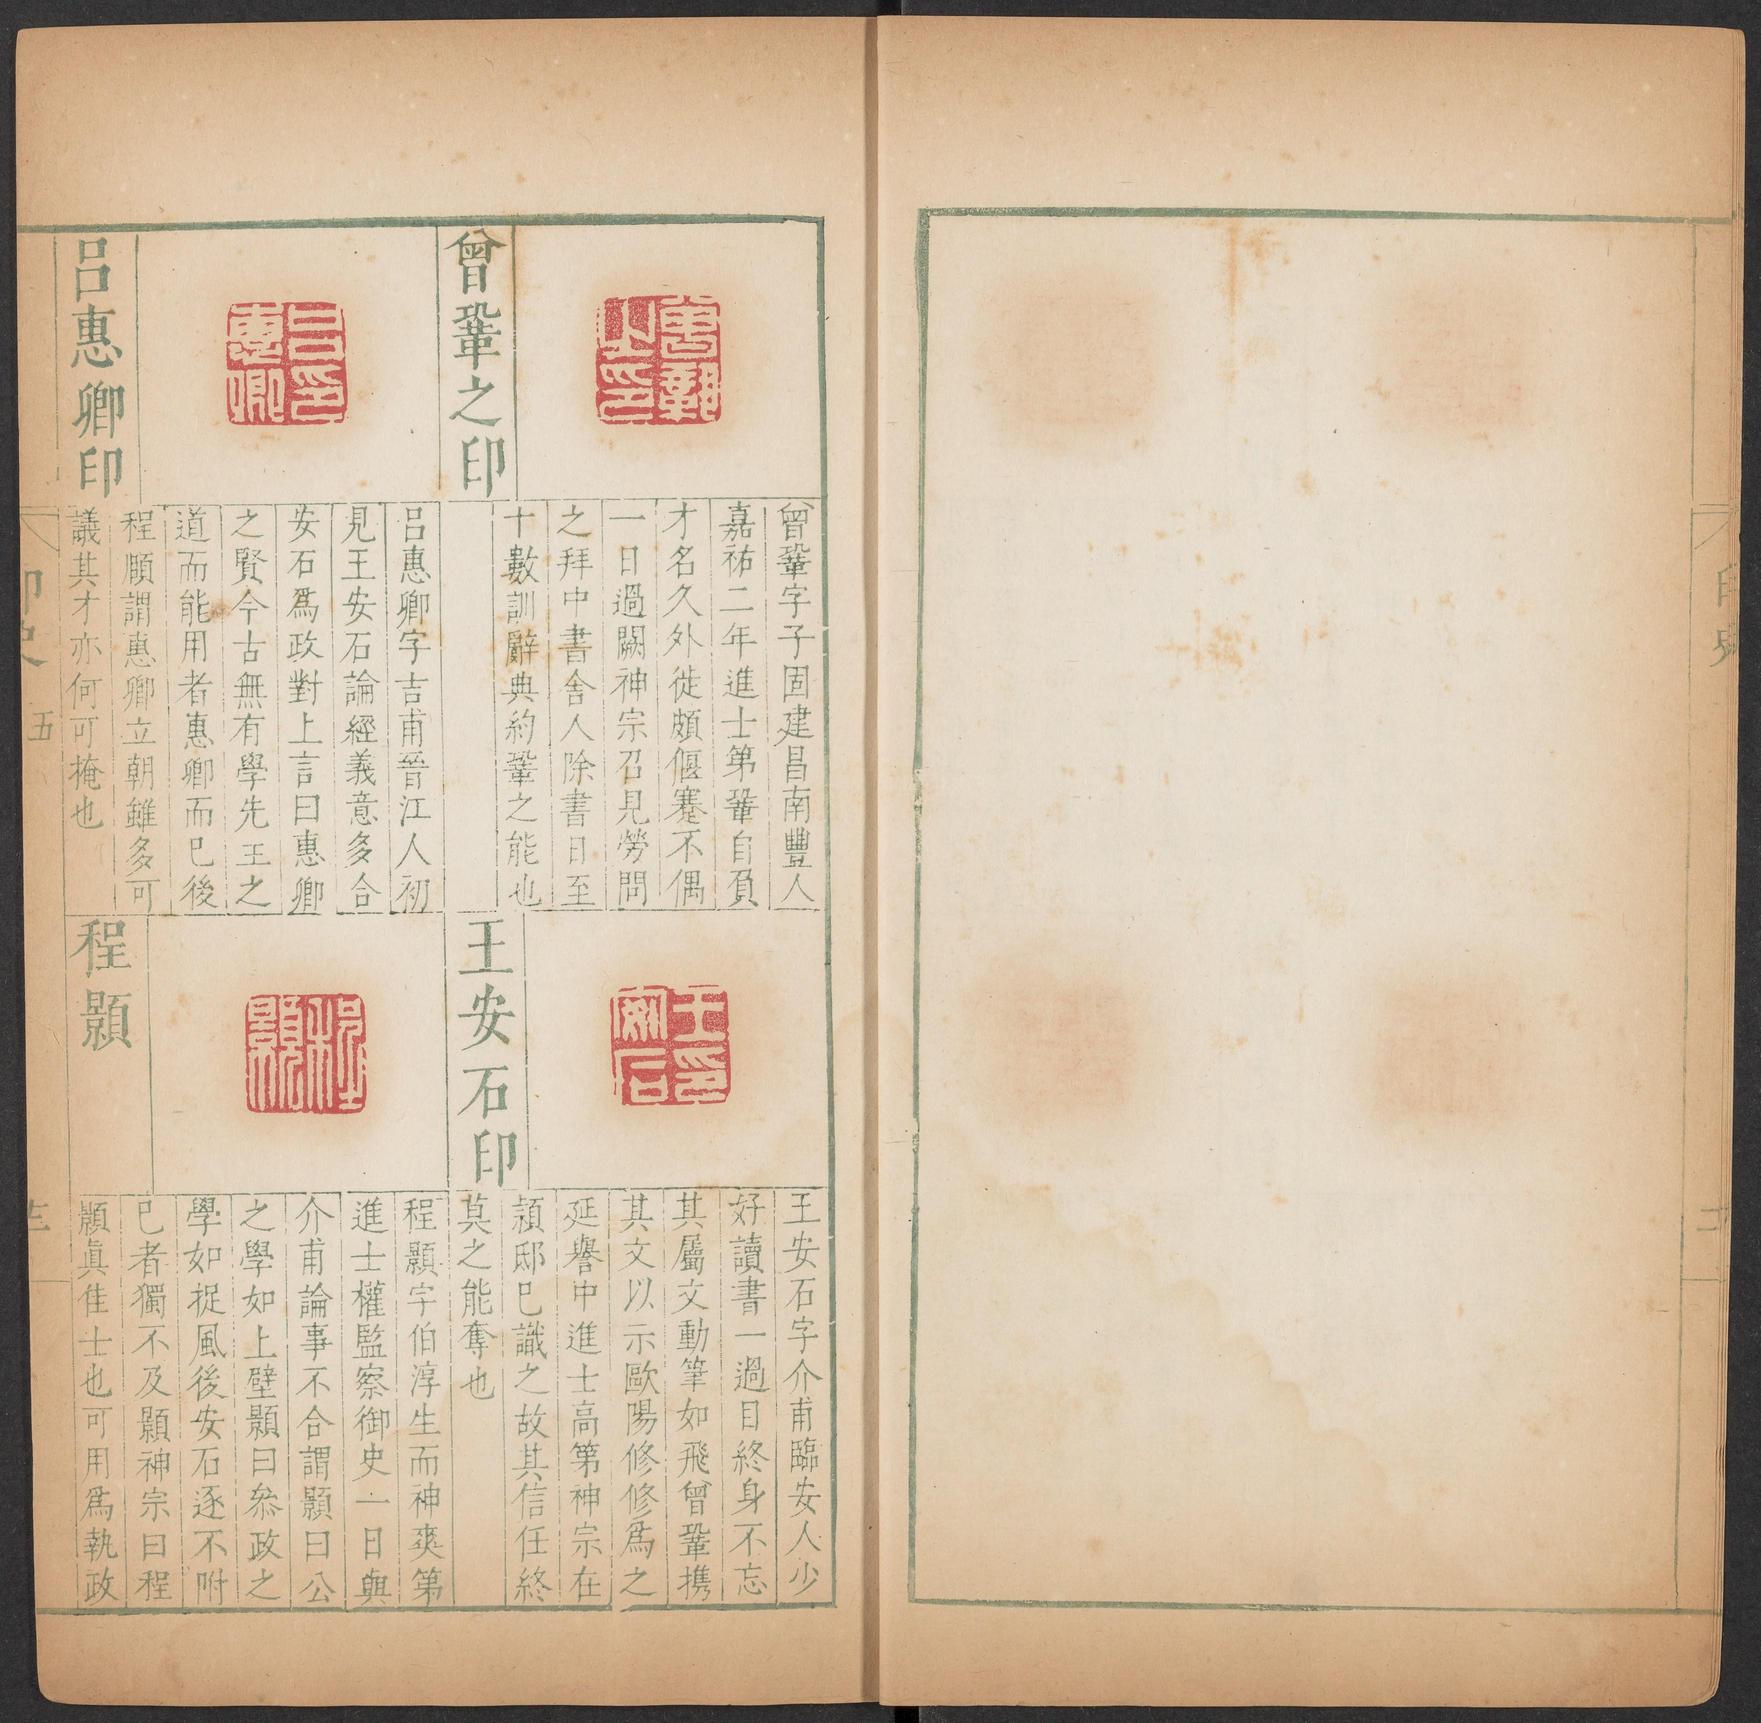 曾鞏之印
曾鞏字子固建昌南豐人
嘉祐二年進士第鞏自負
才名久外徙頗偃蹇不偶
一日過闕神宗召見勞問
之拜中書舍人除書日至
十數訓辭典約鞏之能也
呂惠卿印
呂惠卿字吉甫晉江人初
見王安石論經義意多合
安石爲政對上言曰惠卿
之賢今古無有學先王之
道而能用者惠卿而已後
程頤謂惠卿立朝雖多可
議其才亦何可掩也
王安石印
王安石字介甫臨安人少
好讀書一過目終身不忘
其屬文動筆如飛曾鞏携
其文以示歐陽修修爲之
延譽中進士高第神宗在
潁邸已識之故其信任終
莫之能奪也
程顥
程顥字伯淳生而神爽第
進士權監察御史一日與
介甫論事不合謂顥曰公
之學如上壁顥曰叅政之
學如捉風後安石逐不附
已者獨不及顥神宗曰程
顥眞佳士也可用爲執政
印史
五